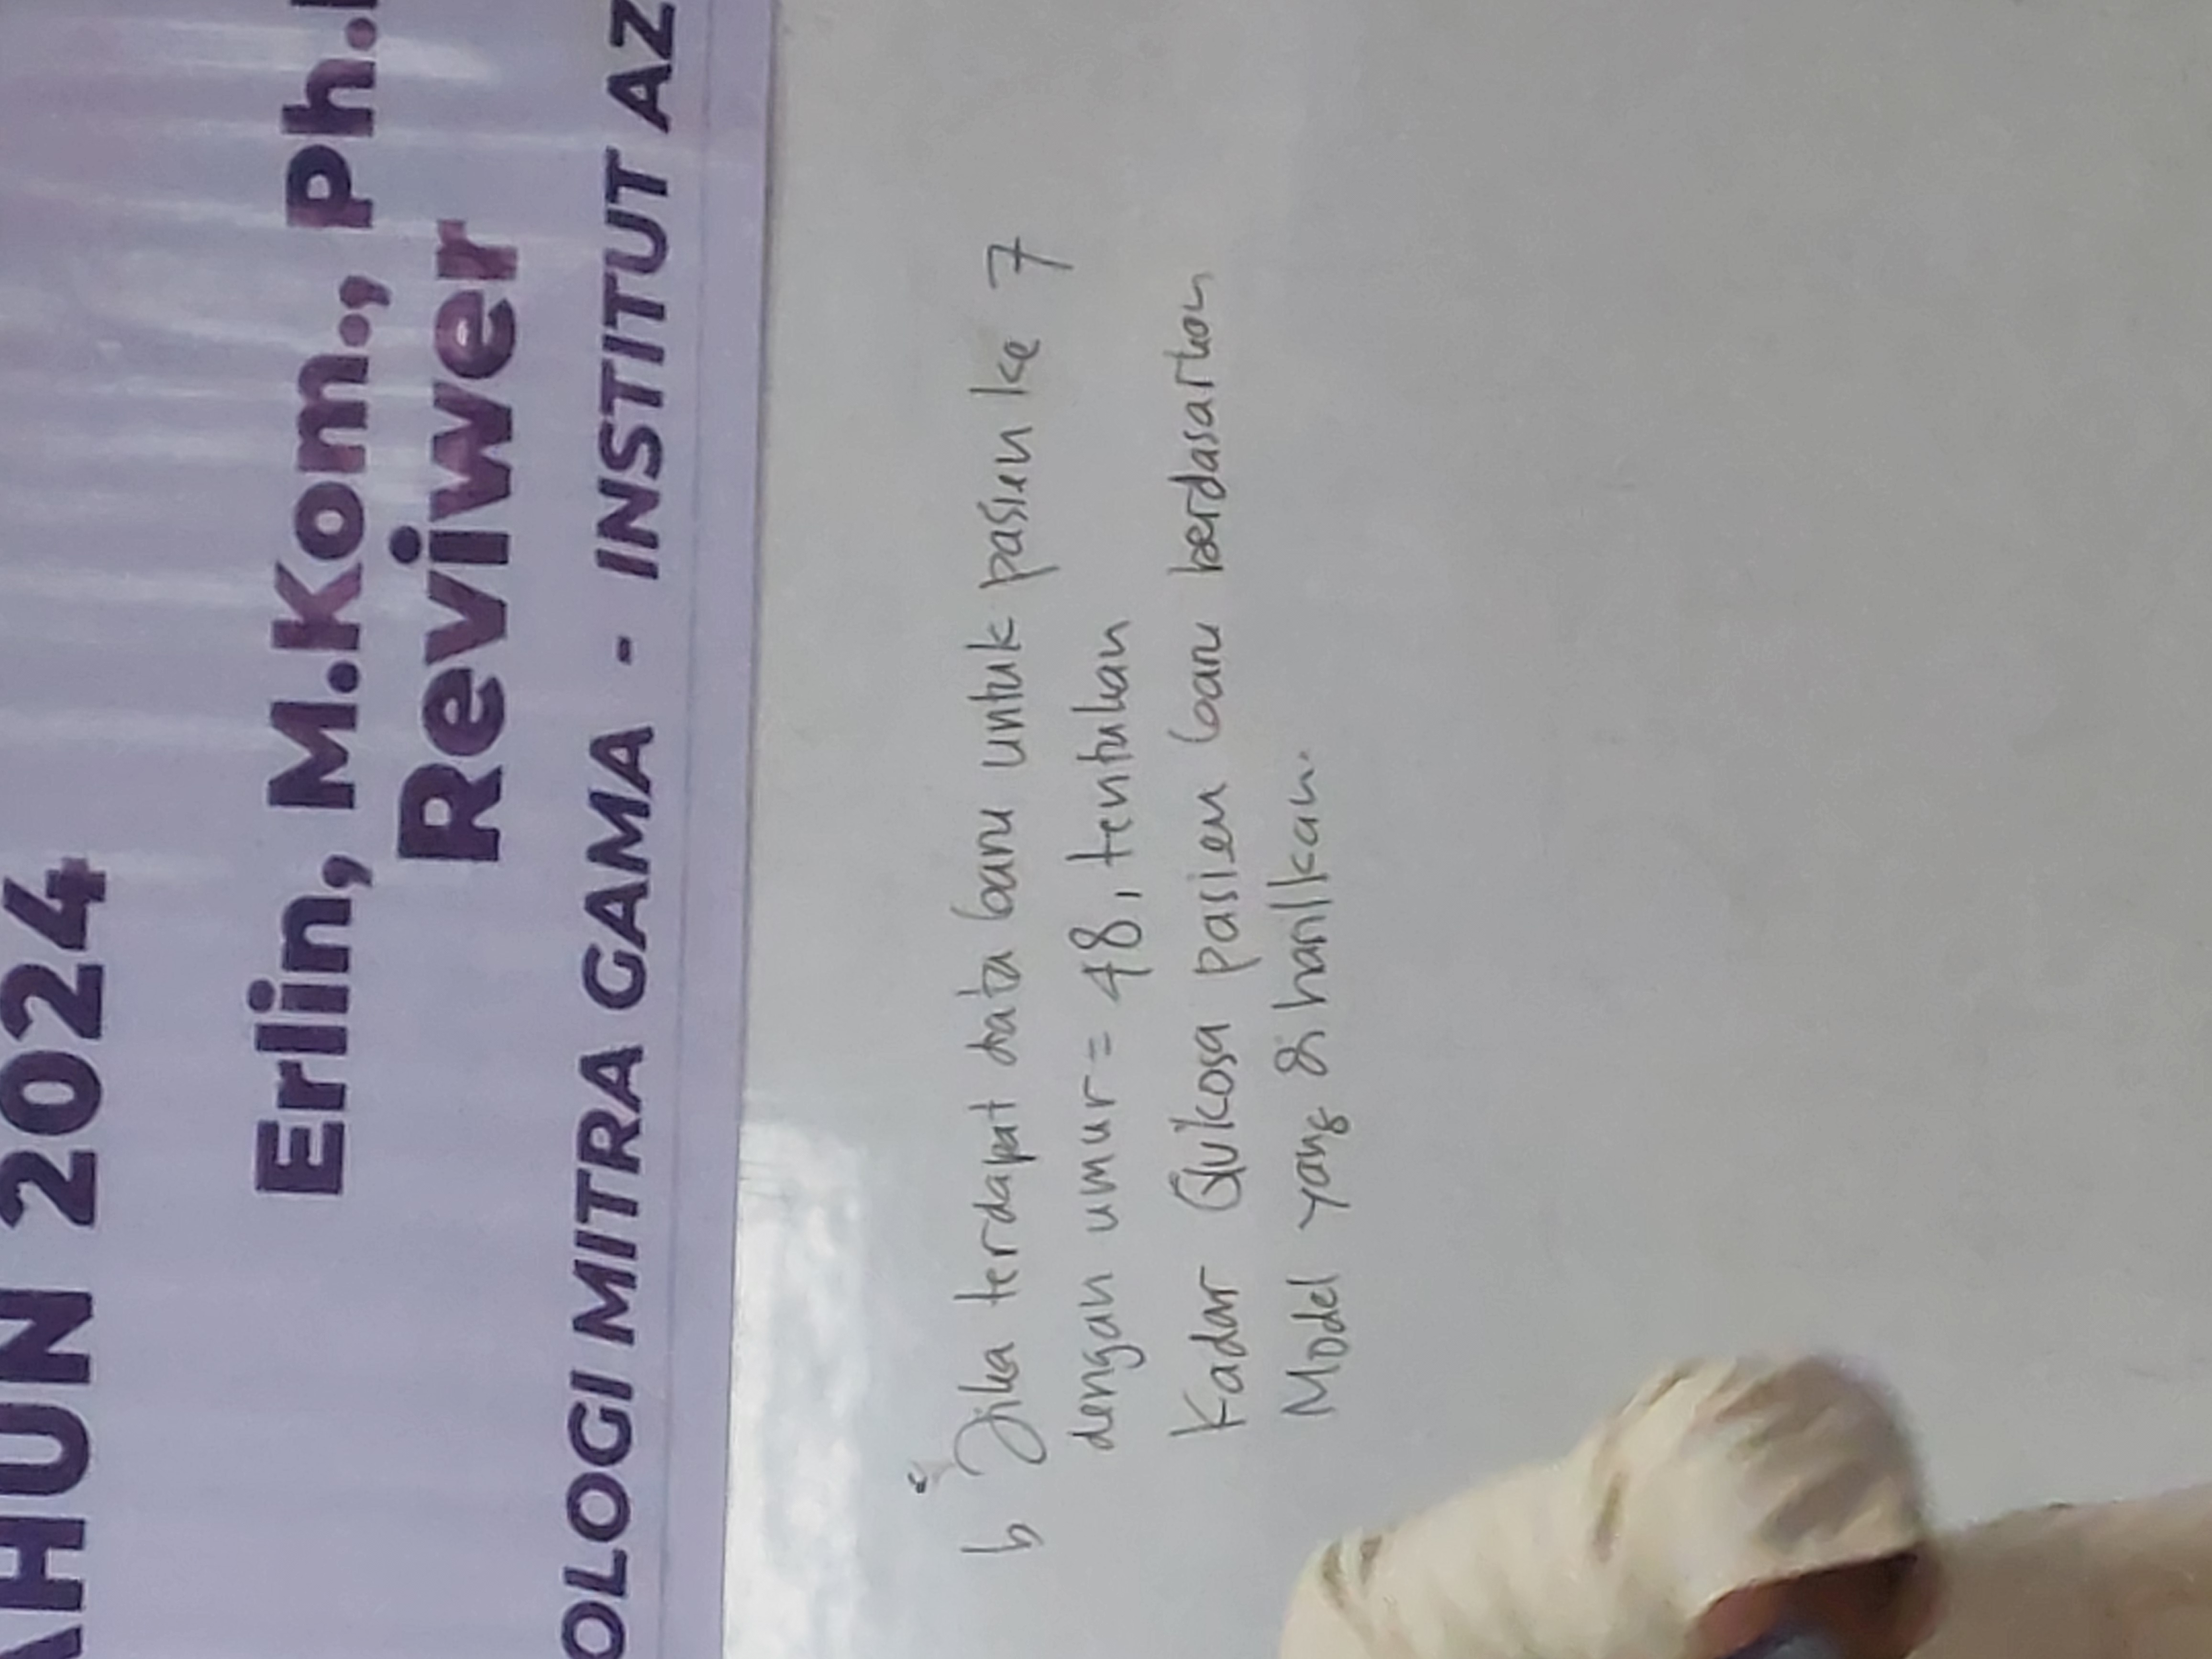 AHUN 2024
Erlin, M.Kom., Ph.
Reviwer
OLOGI MITRA GAMA - INSTITUT AZ
b Jika terdapat data baru untuk pasien ke 7
dengan umur = 48, tentukan
Kadar Glukosa pasien baru berdasarkan
Model yang dihasilkan.